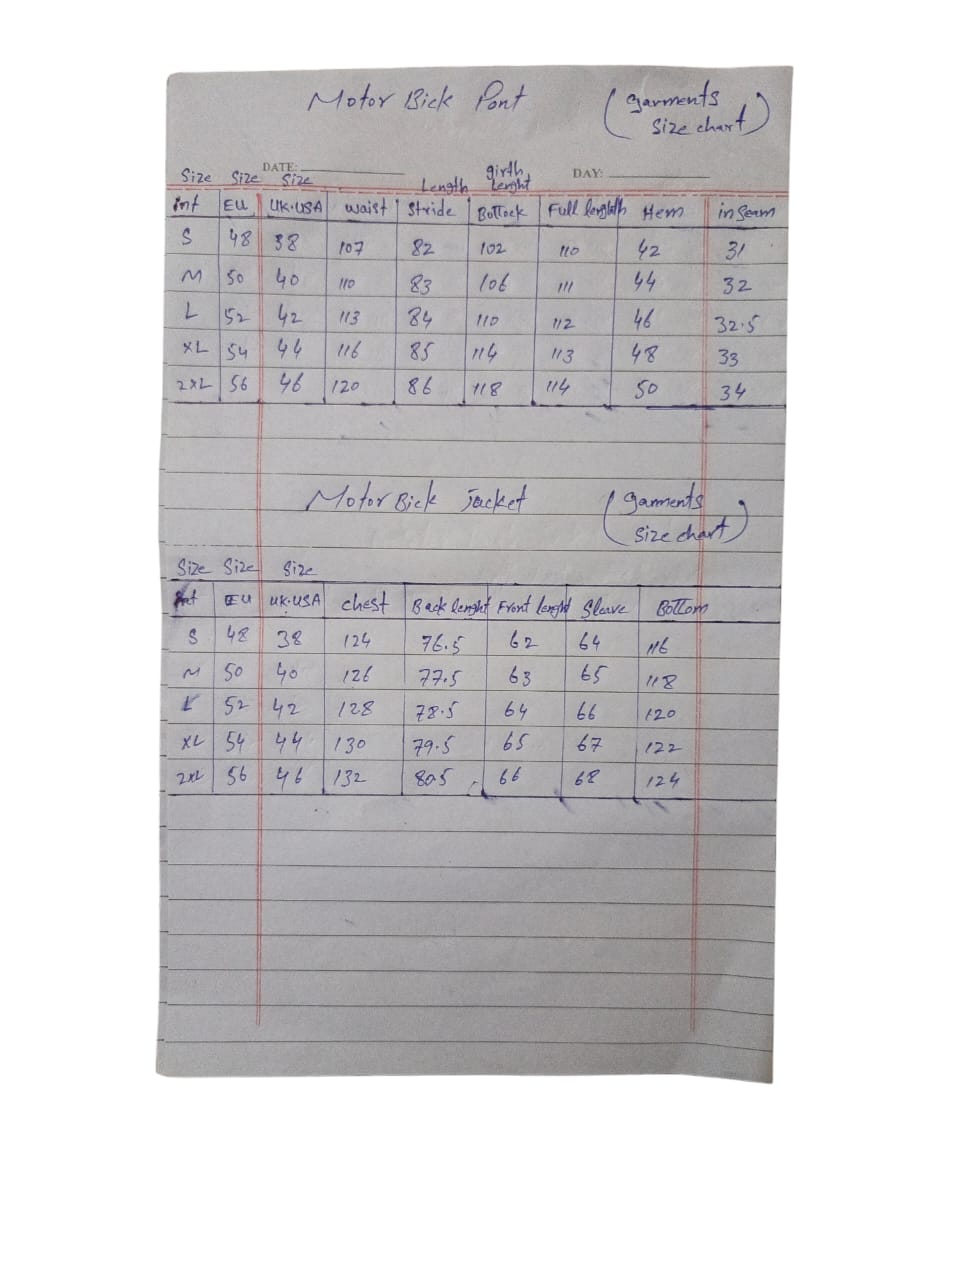 Motor Bick Pant (garments
size chart)
DATE: DAY:
Size Size Size Length girth Lenght
int EU UK.USA waist Stride Buttock Full length Hem in Seam
S 48 38 107 82 102 110 42 31
M 50 40 110 83 106 111 44 32
L 52 42 113 84 110 112 46 32.5
XL 54 44 116 85 114 113 48 33
2XL 56 46 120 86 118 114 50 34
Motor Bick Jacket (garments
size chart)
Size Size Size
int EU UK.USA chest Back lenght Front lenght Sleave Bottom
S 48 38 124 76.5 62 64 116
M 50 40 126 77.5 63 65 118
L 52 42 128 78.5 64 66 120
XL 54 44 130 79.5 65 67 122
2XL 56 46 132 80.5 66 68 124